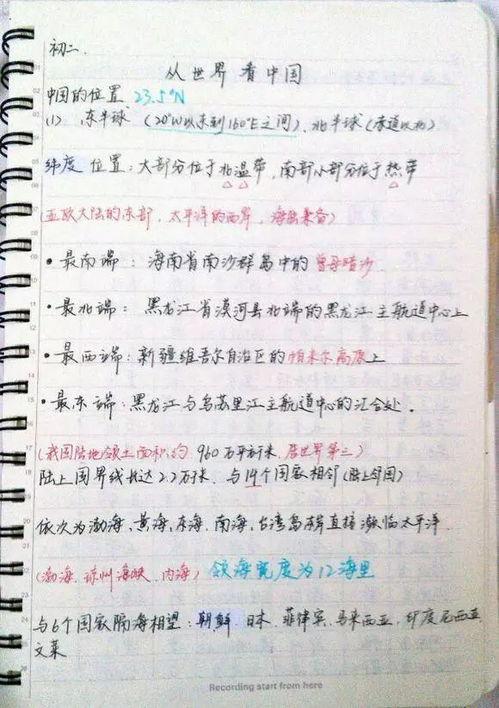 初二.
从世界看中国
中国的位置 23.5°N
(1) 东半球 (20°W以东到160°E之间), 北半球(赤道以北)
纬度位置:大部分位于北温带,南部小部分位于热带
(亚欧大陆的东部, 太平洋的西岸, 海陆兼备)
• 最南端: 海南省南沙群岛中的曾母暗沙
• 最北端: 黑龙江省漠河县北端的黑龙江主航道中心上
• 最西端: 新疆维吾尔自治区的帕米尔高原上
• 最东端: 黑龙江与乌苏里江主航道中心的汇合处.
(我国陆地领土面积约 960万平方千米, 居世界第三)
陆上国界线长达2.2万千米, 与14个国家相邻(陆上邻国)
依次为渤海, 黄海, 东海, 南海, 台湾岛东岸直接濒临太平洋.
(渤海、琼州海峡、内海) 领海宽度为12海里
与6个国家隔海相望: 朝鲜 日本、菲律宾、马来西亚、印度尼西亚
文莱
Recording start from here